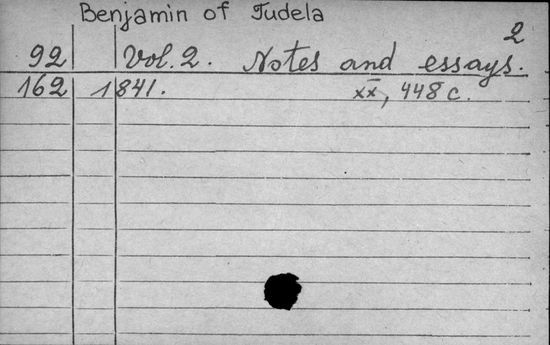 Benjamin of Tudela
2
92 Vol. 2. Notes and essays.
162 1841. xx, 448 c.